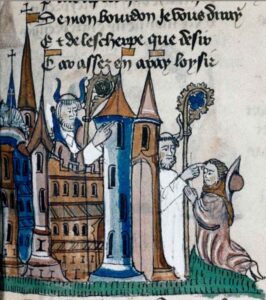 De mon bourdon je vous diray
Et de lescherpe que desir
Car assez en auray loysir